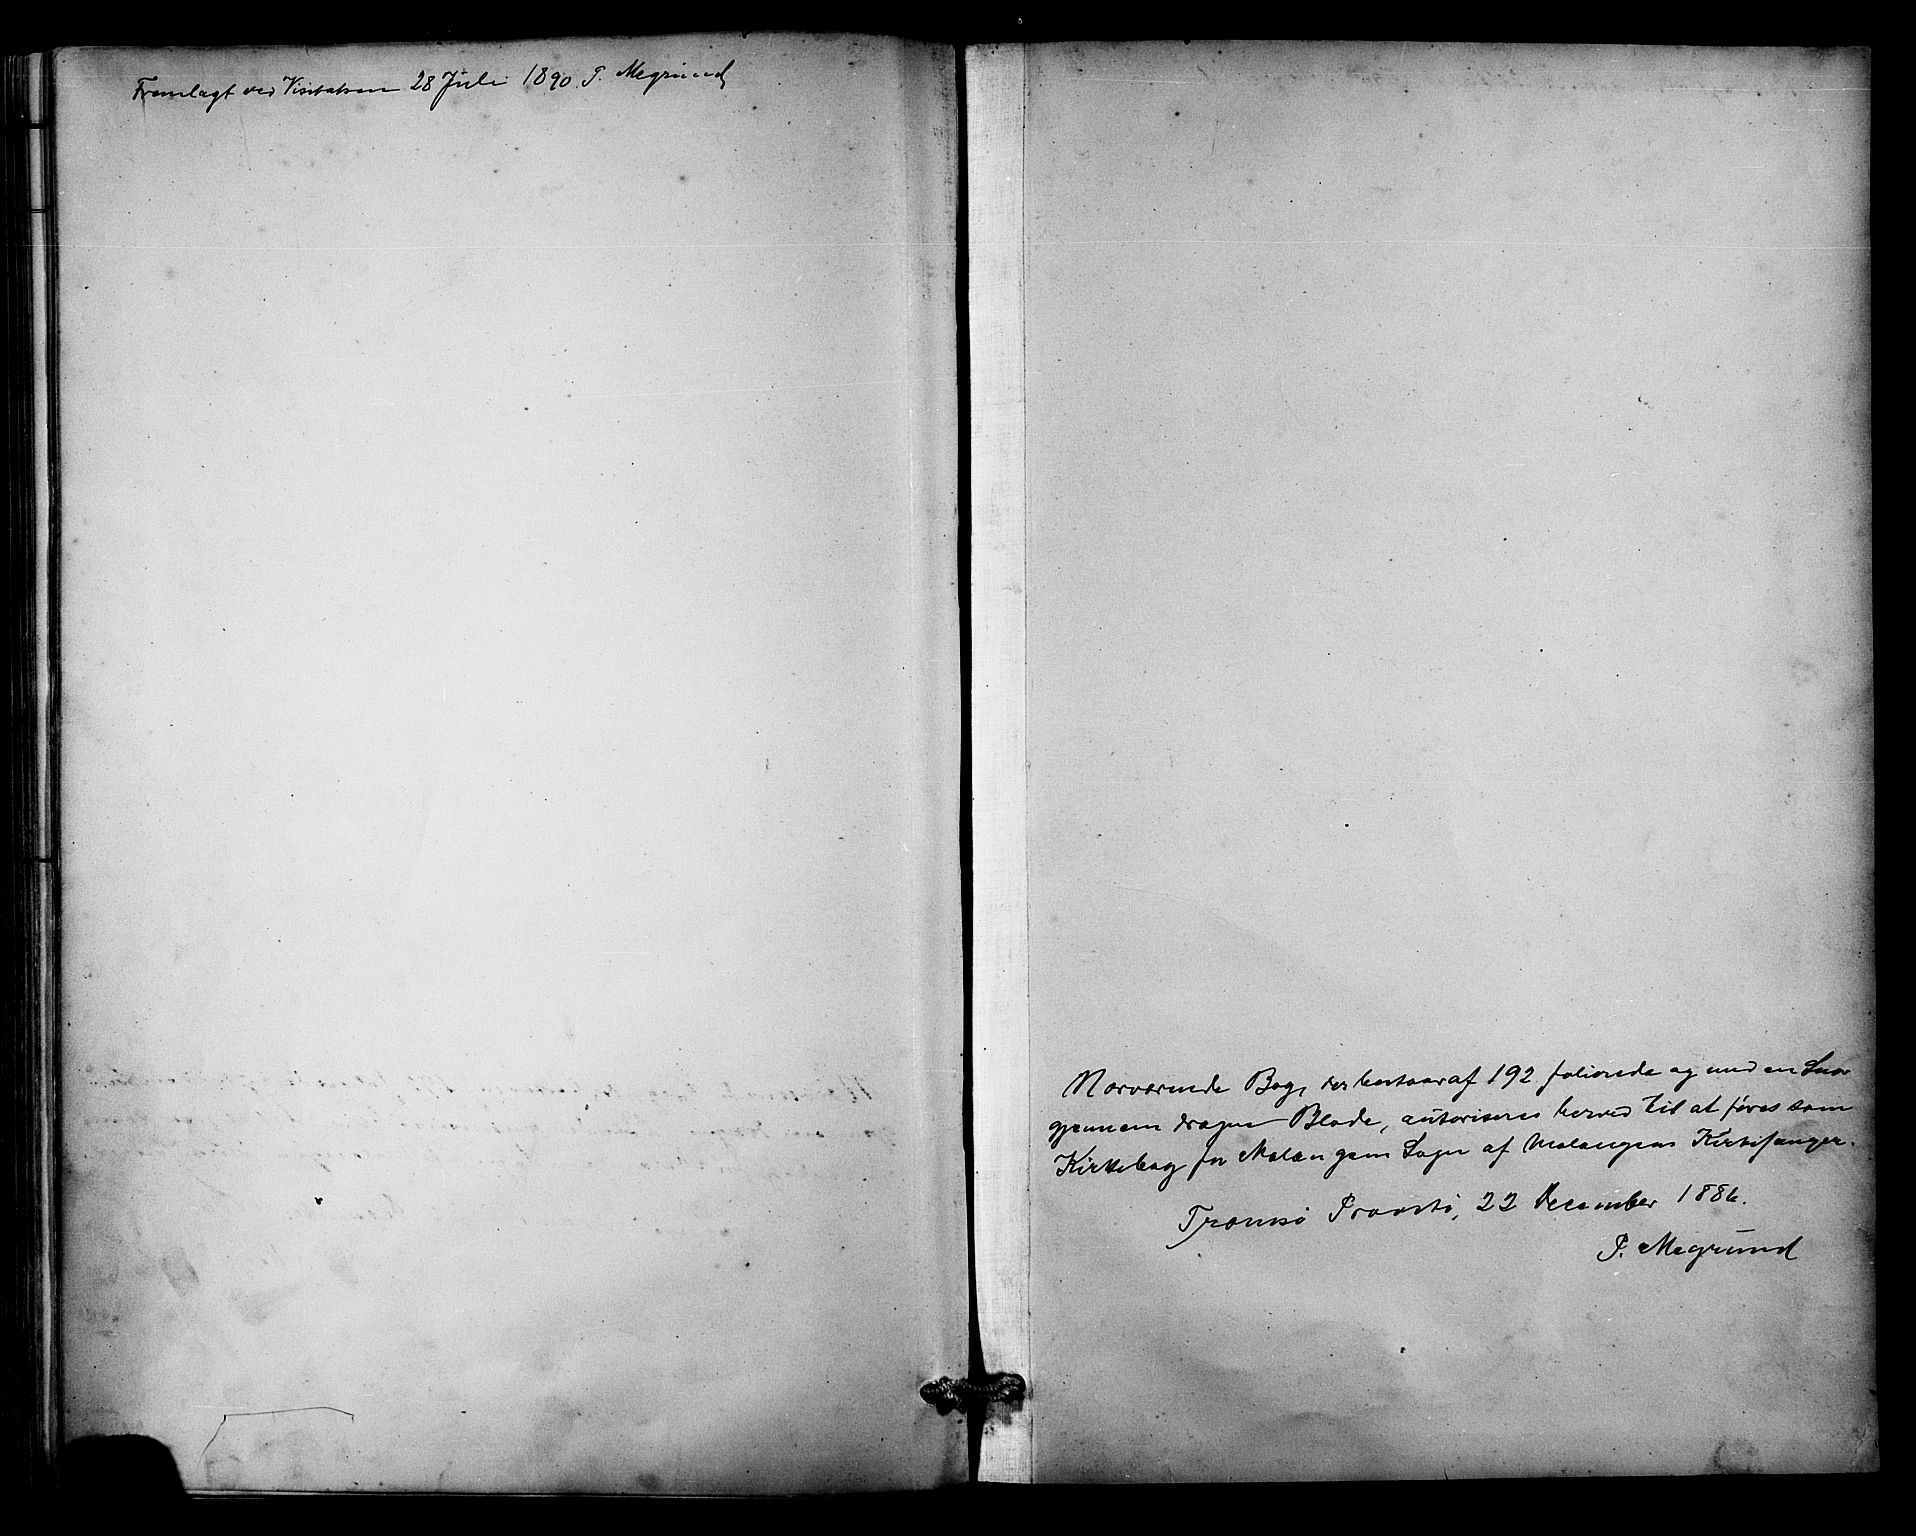 Fremlagt ved Visitatsen 28 Juli 1890. P. Megrund
Nærværende Bog, der bestaar af 192 folierede og med en Snor
gjennemdragne Blade, autoriseres herved til at føres som
Kirkebog for Malangens Sogn af Malangens Kirkesanger.
Tromsø Provsti, 22 December 1886.
P. Megrund